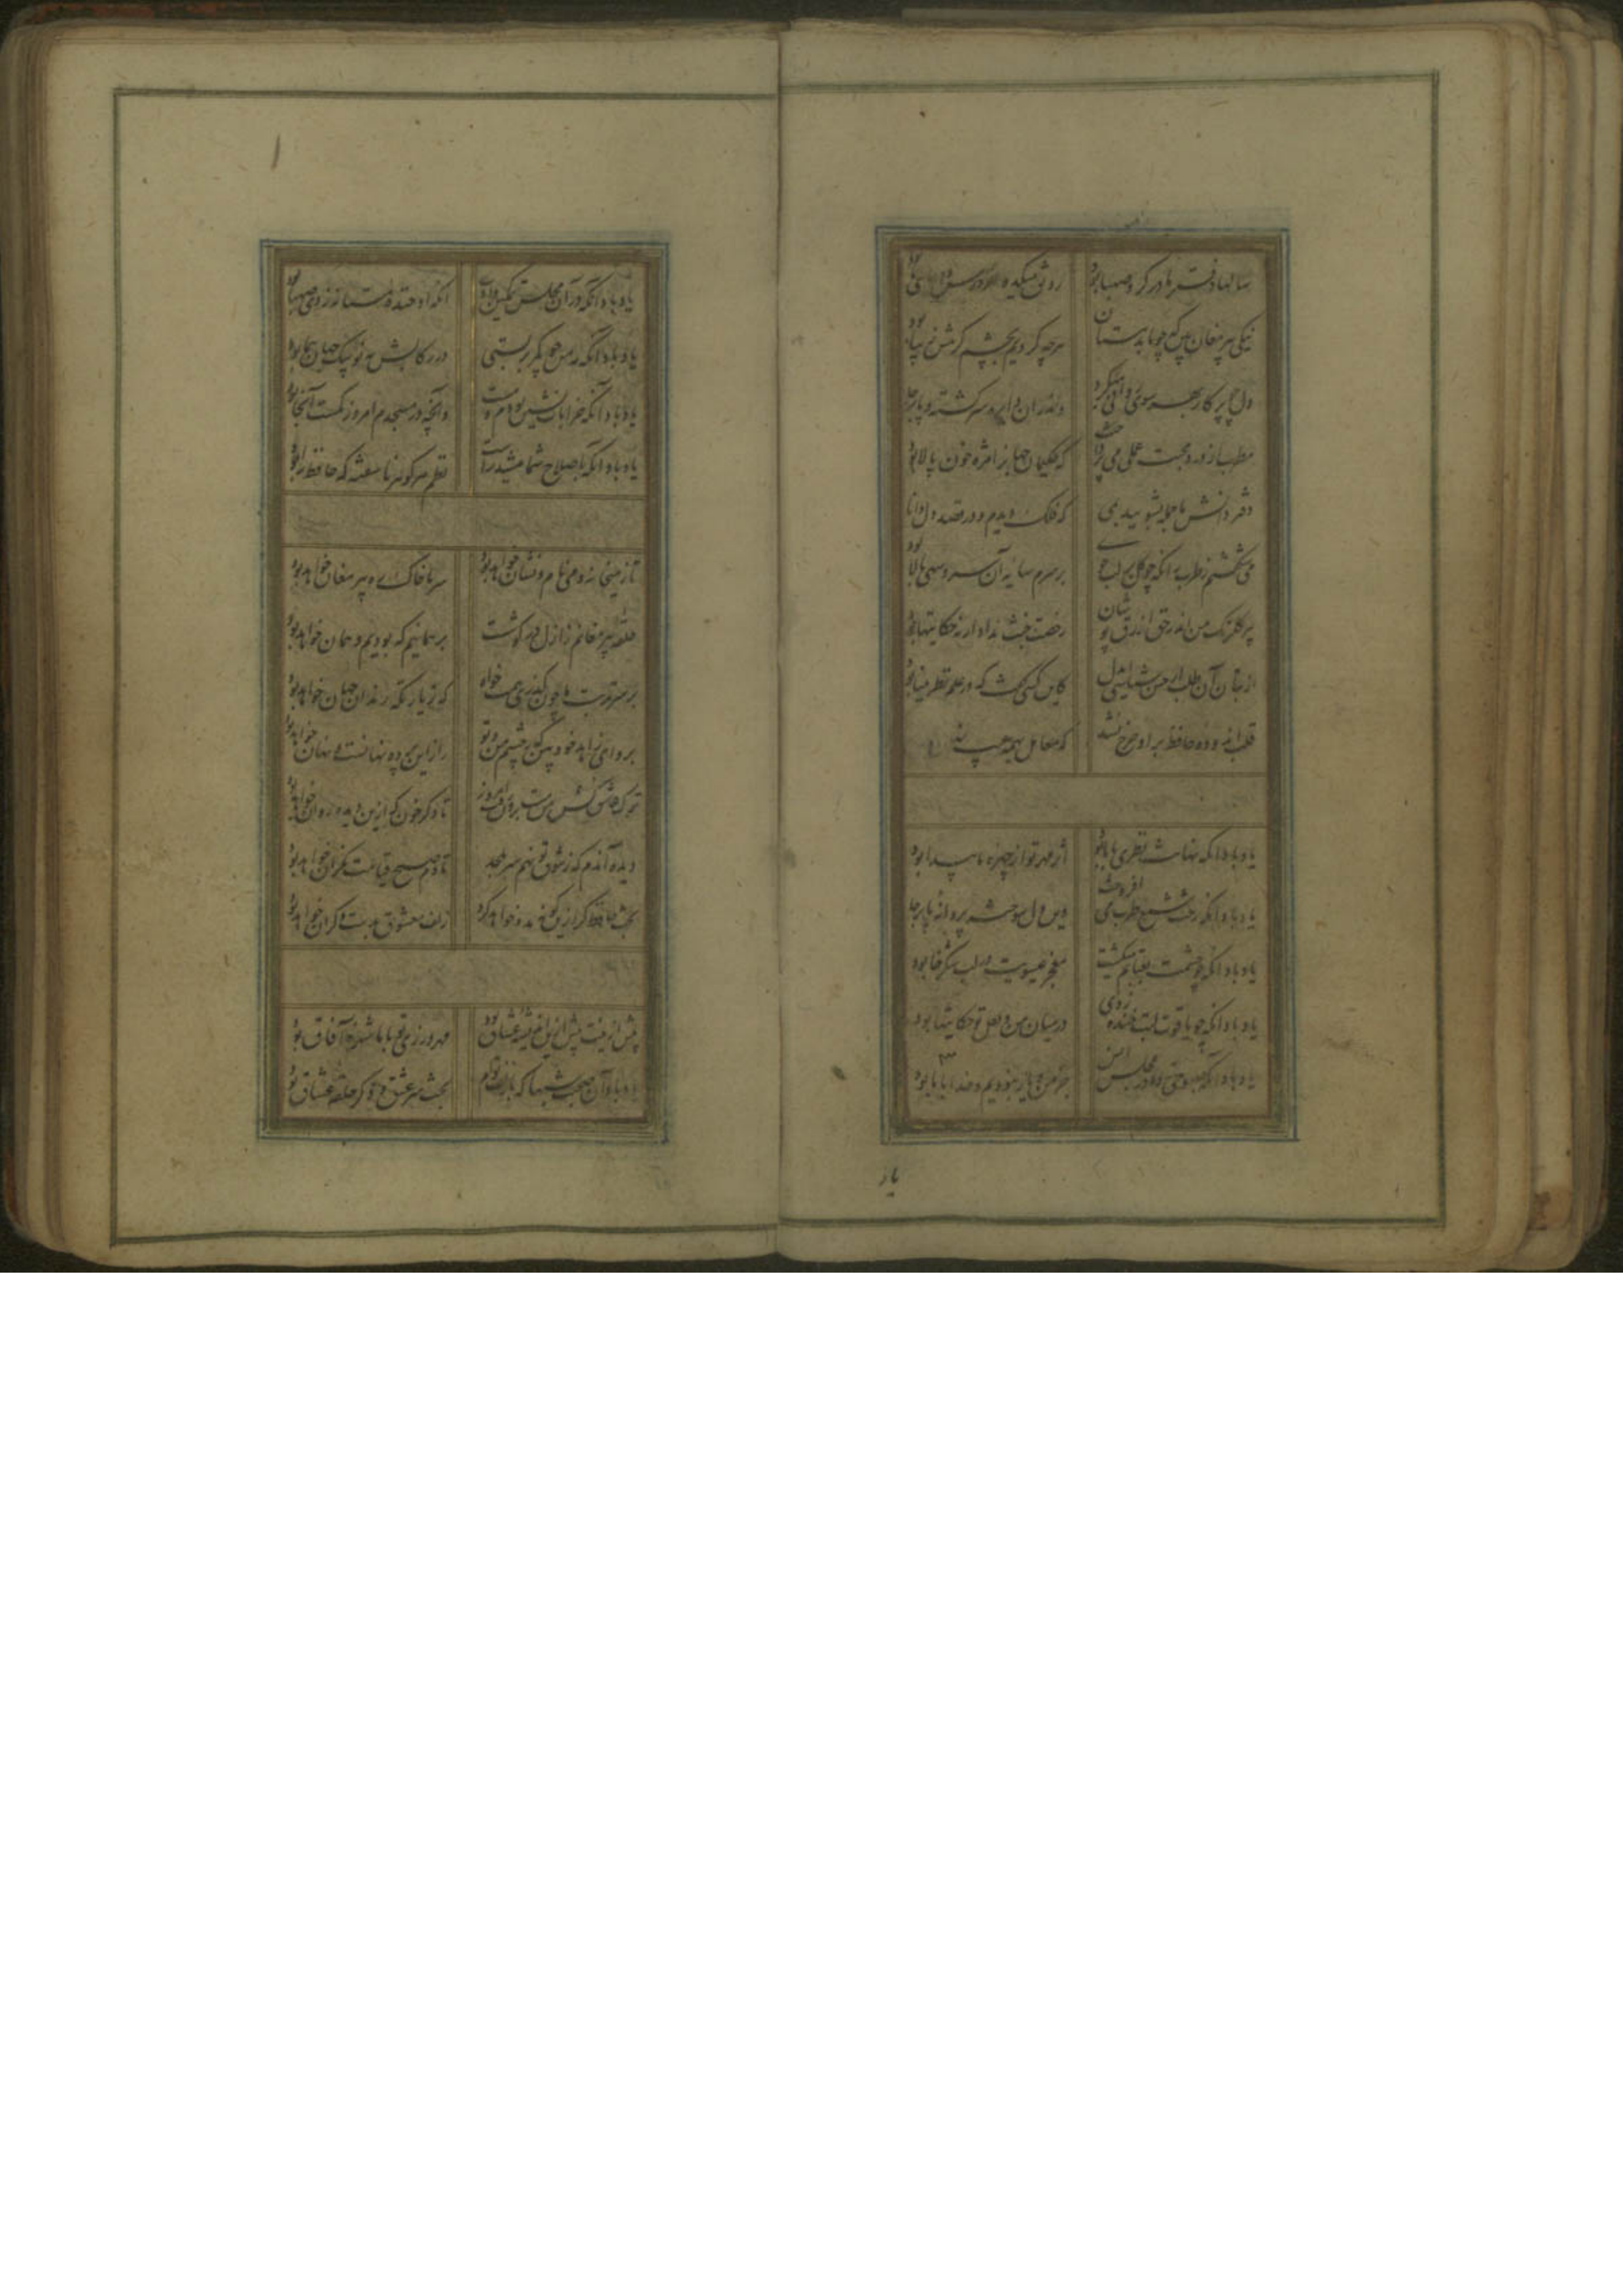 سالها دفتر ما در گرو صهبا بود رونق میکده از درس و دعای ما بود
نیکی پیر مغان بین که چو ما بدمستان هرچه کردیم بچشم کرمش زیبا بود
دل چو پرکار بهر سوی دورانی میکرد و اندران دایره سرکشته پابرجا بود
مطرب از درد محبت عملی می پرداخت که حکیمان جهانرا مژه خون پالا بود
دفتر دانش ما جمله بشویید بمی که فلک دیدم و در قصد دل دانا بود
می شکفتم ز طرب زانکه چو کل بر لب جوی بر سرم سایه آن سرو سهی بالا بود
پیر کلرنک من اندر حق ازرق پوشان رخصت خبث نداد ار نه حکایتها بود
از بتان آن طلب ار حسن شناسی ایدل کاین کسی گفت که در علم نظر بینا بود
قلب اندوده حافظ بر او خرج نشد که معامل بهمه عیب
یاد باد انکه نهانت نظری با ما بود اثر مهر تو از چهره ما پیدا بود
یاد باد انکه رخت شمع طرب می افروخت وین دل سوخته پروانه پابرجا بود
یاد باد انکه چو چشمت بعتابم میکشت معجز عیسویت در لب شکرخا بود
یاد باد انکه چو یاقوت لبت خنده زدی در میان من و لعل تو حکایتها بود
یاد باد انکه صبوحی زده در مجلس انس جز من و یار نبودیم و خدا با ما بود
یاد
یاد باد انکه در آن مجلس انکه او خنده مستانه زدی صهبا بود
یاد باد انکه مه من چو کمر بربستی در رکابش مه نو پیک جهان پیما بود
یاد باد انکه خرابات نشین بودم و مست وانچه در مسجدم امروز کمست آنجا بود
یاد باد انکه باصلاح شما میشد راست نظم هر کوهر ناسفته که حافظ را بود
تا ز میخانه و می نام و نشان خواهد بود سر ما خاک ره پیر مغان خواهد بود
حلقه پیر مغانم ز ازل در کوشست بر همانیم که بودیم و همان خواهد بود
بر سر تربت ما چون کذری همت خواه که زیارتکه رندان جهان خواهد بود
برو ای زاهد خودبین که ز چشم من و تو راز این پرده نهانست و نهان خواهد بود
ترک عاشق کش من مست برون رفت امروز تا دکر خون که از دیده روان خواهد بود
دیده آندم که ز شوق تو نهم سر بلحد تا دم صبح قیامت نکران خواهد بود
بخت حافظ کر ازین کونه مدد خواهد کرد زلف معشوق بدست دکران خواهد بود
پیش ازینت بیش ازین اندیشه عشاق بود مهرورزی تو با ما شهره آفاق بود
یاد باد آن صحبت شبها که با زلف توام بحث سر عشق و ذکر حلقه عشاق بود